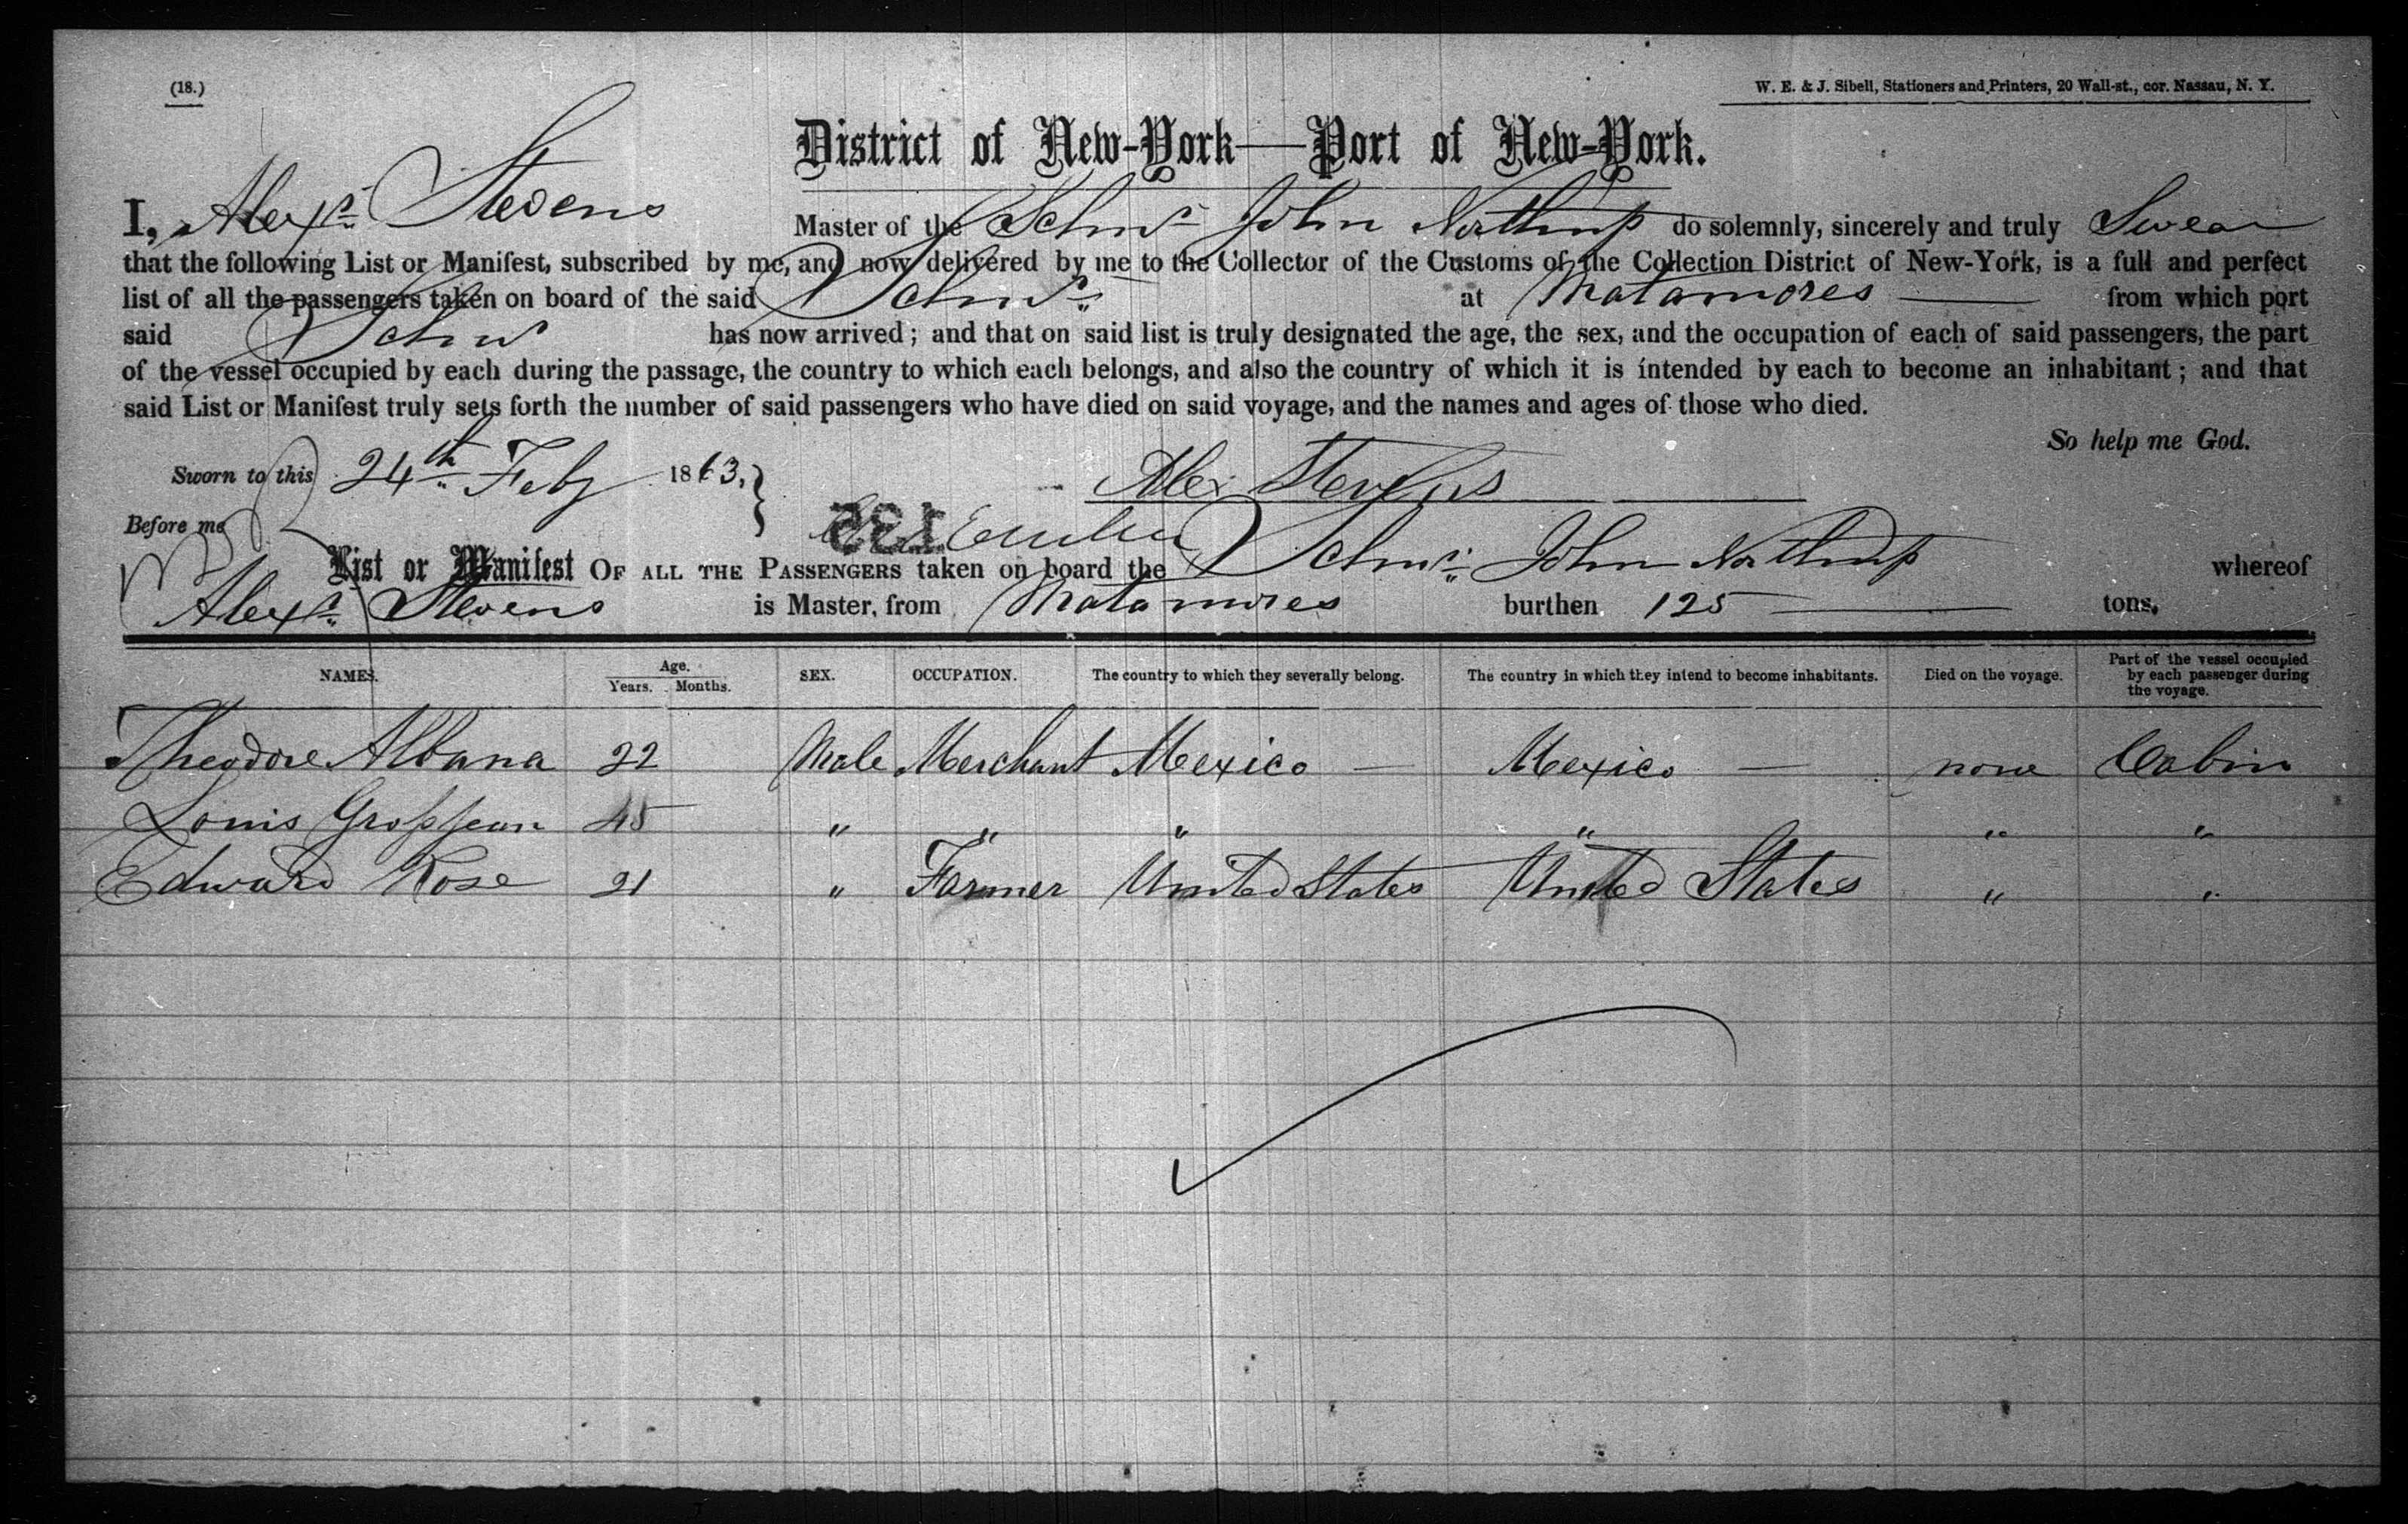 (18.)
W. E. & J. Sibell, Stationers and Printers, 20 Wall-st., cor. Nassau, N. Y.
District of New-York—Port of New-York.
I, Alexr. Stevens Master of the Schnr. John Northrup do solemnly, sincerely and truly Swear
that the following List or Manifest, subscribed by me, and now delivered by me to the Collector of the Customs of the Collection District of New-York, is a full and perfect
list of all the passengers taken on board of the said Schnr. at Matamores — from which port
said Schnr has now arrived; and that on said list is truly designated the age, the sex, and the occupation of each of said passengers, the part
of the vessel occupied by each during the passage, the country to which each belongs, and also the country of which it is intended by each to become an inhabitant; and that
said List or Manifest truly sets forth the number of said passengers who have died on said voyage, and the names and ages of those who died.
So help me God.
Sworn to this 24th Feby 1863, Alex Stevens
Before me
135
List or Manifest OF ALL THE PASSENGERS taken on board the Schnr. John Northrup whereof
Alexr. Stevens is Master, from Matamores burthen 125 — tons.
NAMES. Age. Years. Months. SEX. OCCUPATION. The country to which they severally belong. The country in which they intend to become inhabitants. Died on the voyage. Part of the vessel occupied by each passenger during the voyage.
Theodore Albana 22 Male Merchant Mexico — Mexico — none Cabin
Louis Grosjean 45 " " " " " "
Edward Rose 21 " Farmer United States United States " "